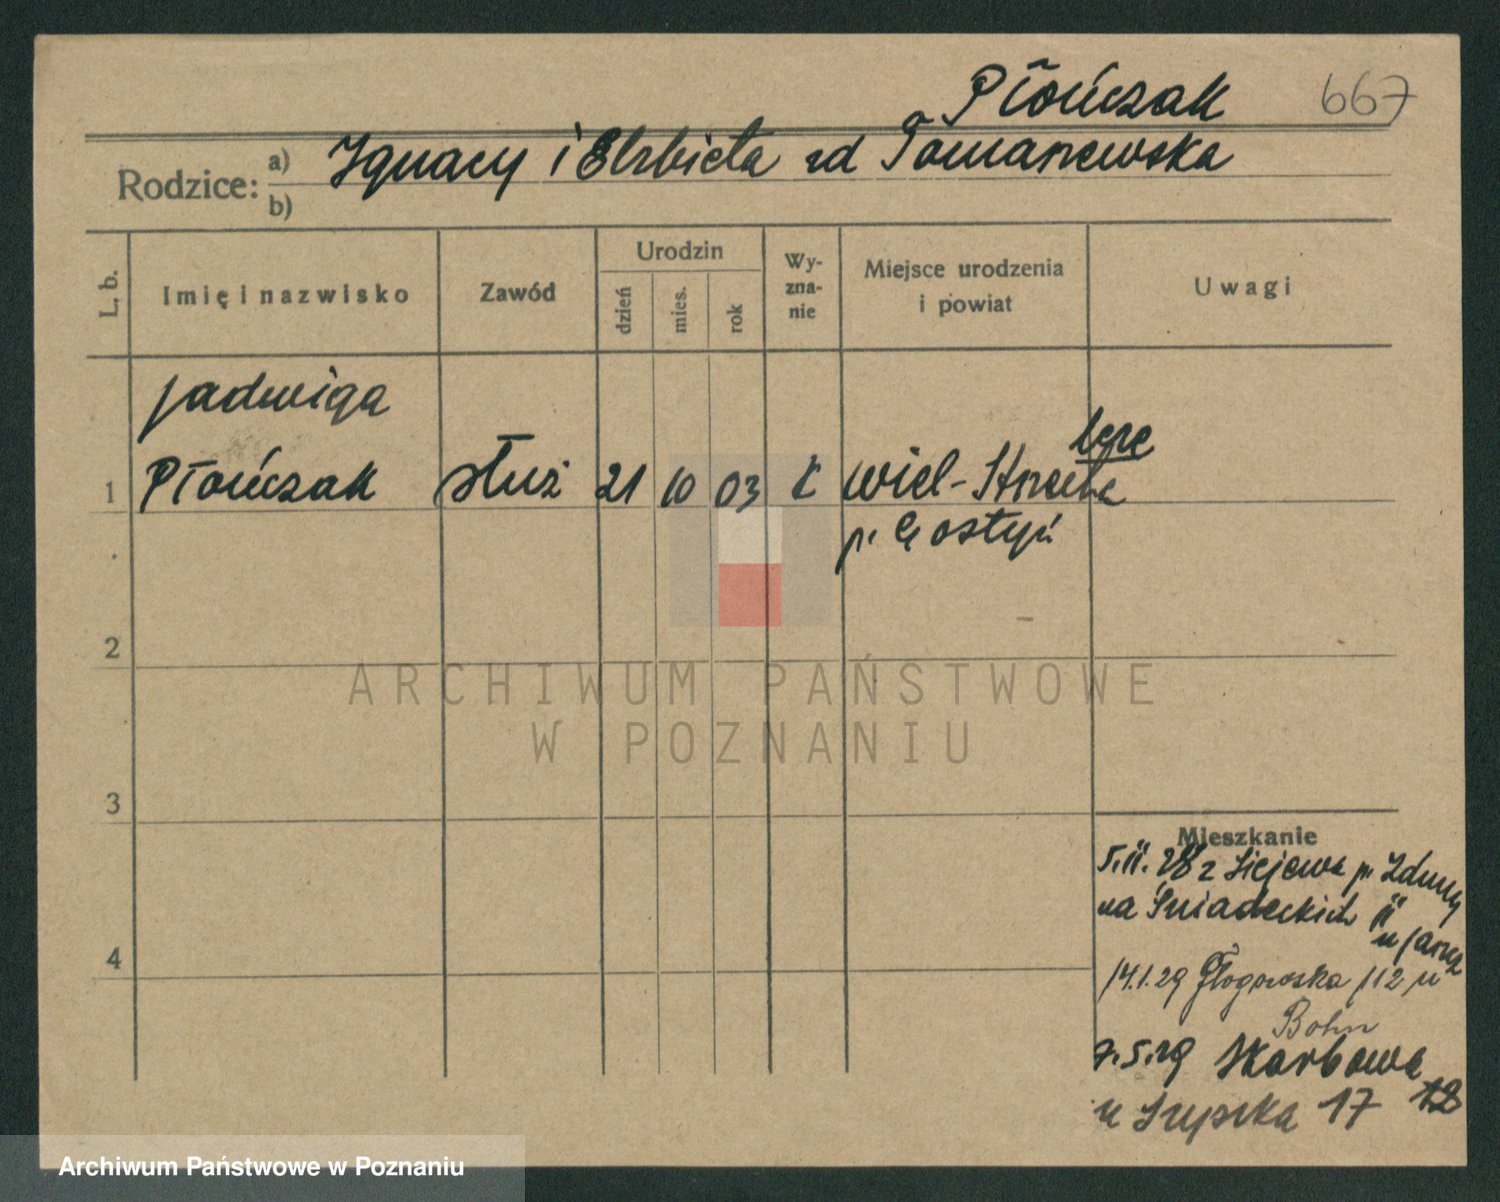 Płończak 667
Rodzice: a) Ignacy i Elżbieta zd Tomaszewska
b)
L. b.
Imię i nazwisko
Zawód
Urodzin
dzień
mies.
rok
Wy-
zna-
nie
Miejsce urodzenia
i powiat
Uwagi
Jadwiga
1 Płończak służ 21 10 03 k Wiel-Strzelcze
p. Gostyń
2
3
4
Mieszkanie
5.II.28 z p. Zduny
na Śniadeckich II
u
14.1.29 Głogowska 112 u
Bohn
7.5.29 Skarbowa
u 17 18
ARCHIWUM PAŃSTWOWE
W POZNANIU
Archiwum Państwowe w Poznaniu